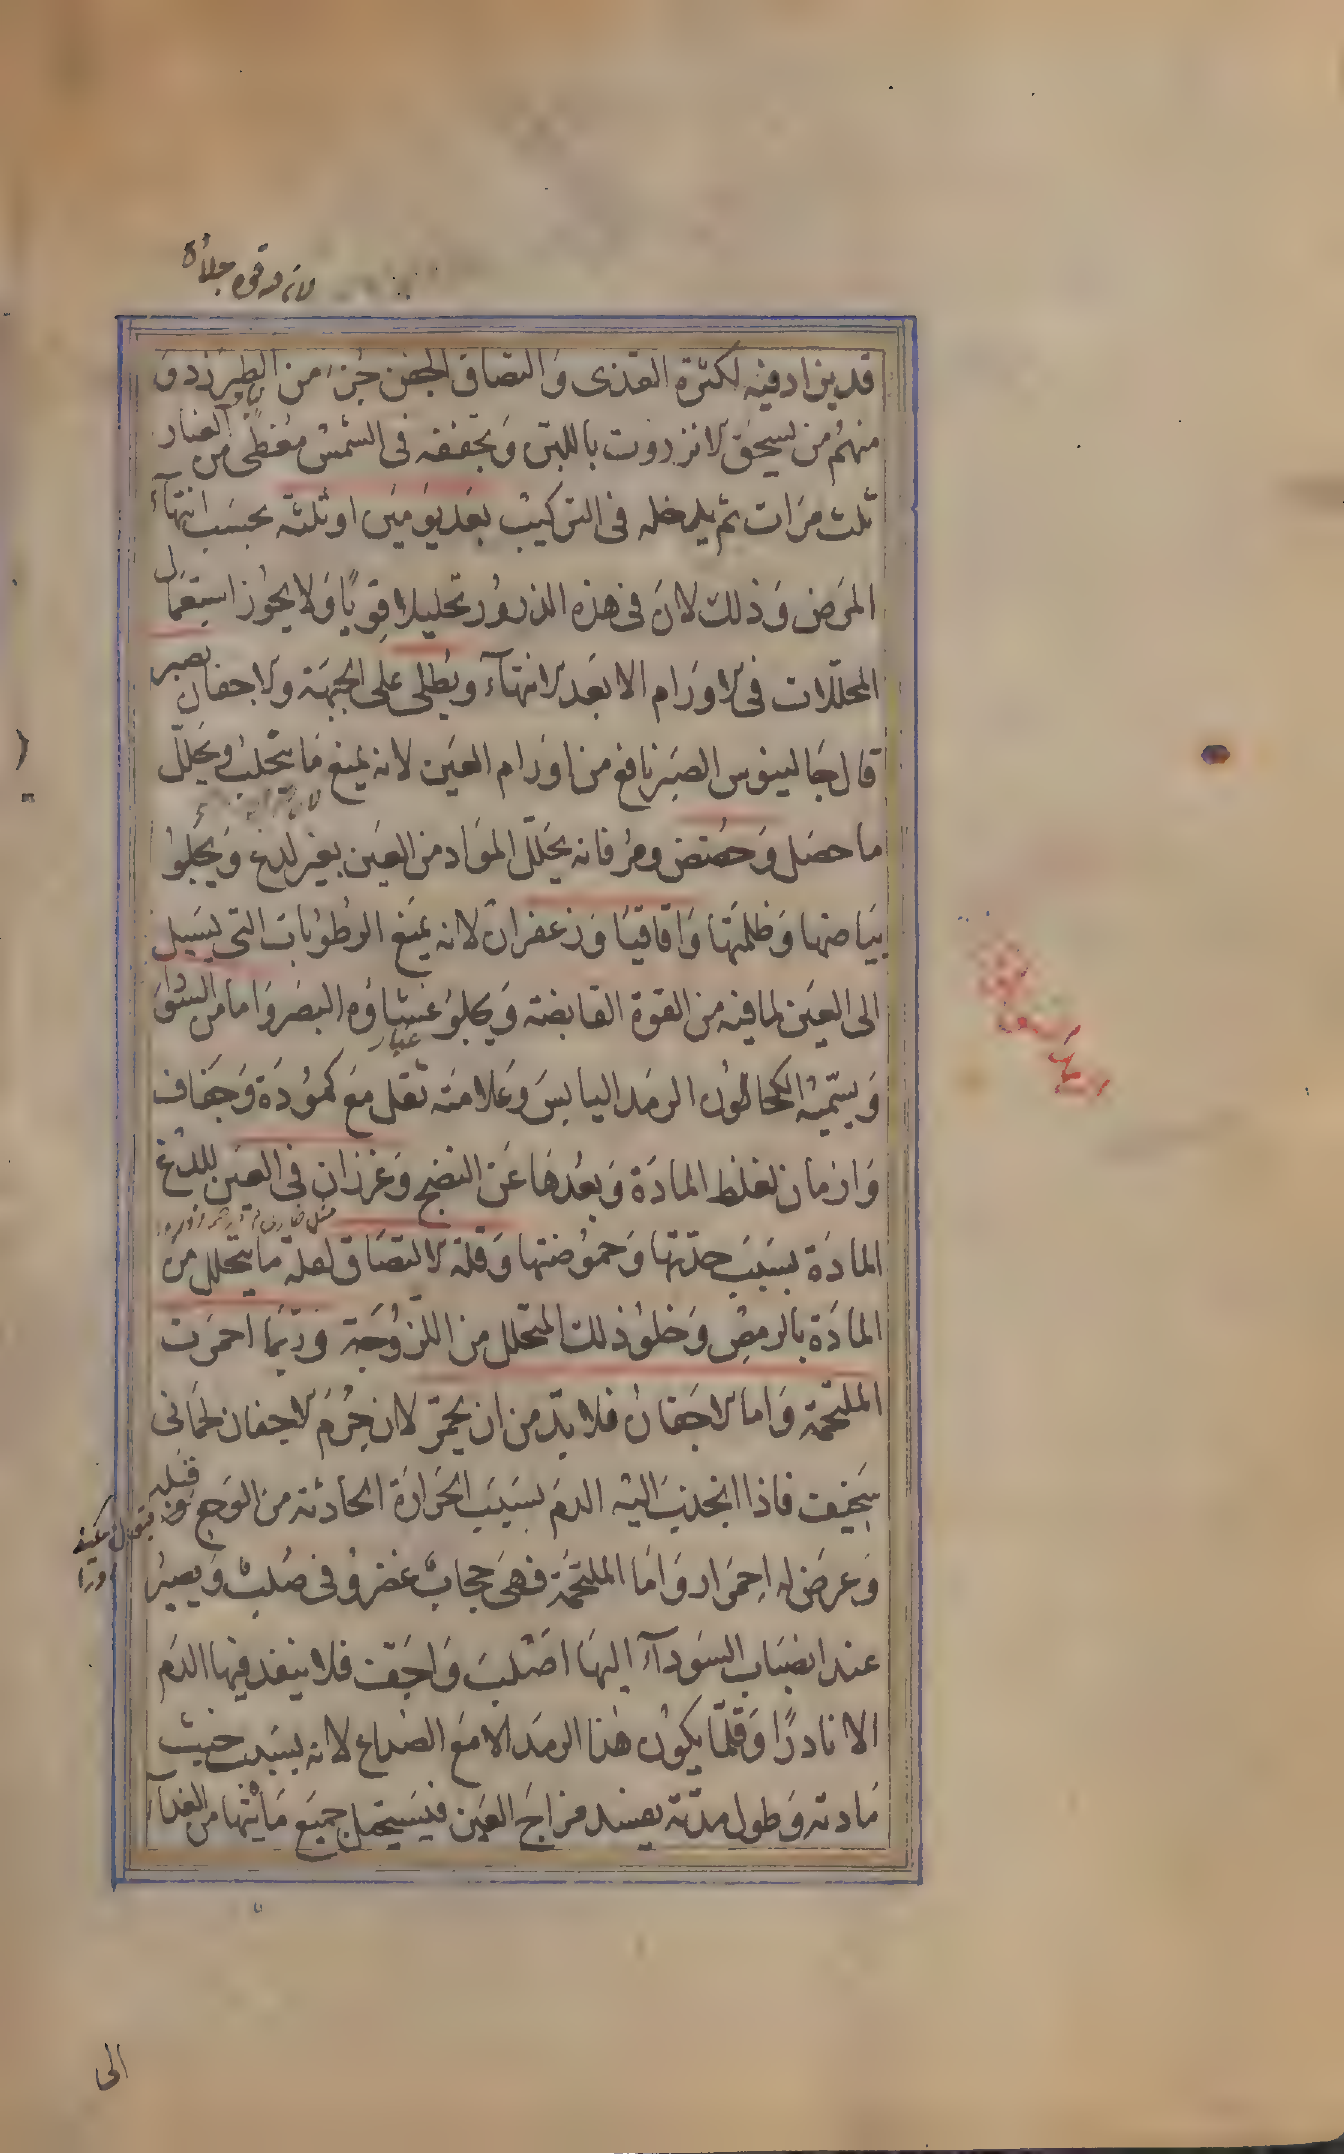 لان فيه قوة جلاءة
قد يزاد فيه لكثرة القذى والتصاق الجفن جزء من الطبرزد و
منهم من يسحق الانزروت باللبن ويجففه في الشمس مغطى من الغبار
ثلث مرات ثم يدخله في التركيب بعد يومين او ثلثة بحسب انتهاء
المرض وذلك لان في هذه الذرور تحليلا قويا ولا يجوز استعمال
المحللات في الاورام الا بعد الانتهاء ويطلى على الجبهة والاجفان بصبر
قال جالينوس الصبر نافع من اورام العين لانه يمنع ما يتحلب ويحلل
ما حصل وحضض ومر فانه يحلل المواد من العين بغير لدغ ويجلوا
بياضها وظلمتها واقاقيا وزعفران لانه يمنع الرطوبات التي يسيل
الى العين لما فيه من القوة القابضة ويجلو غشاؤه البصر واما من السوداء
غبار
ويسميه الكحالون الرمد اليابس وعلامته ثقل مع كمودة وجفاف
وازمان لغلظ المادة وبعدها عن النضج وغرزان في العين للدغ
المادة بسبب حدتها وحموضتها وقلة الالتصاق لقلة ما يتحلل من
المادة بالرمص وخلو ذلك المتحلل من اللزوجة وربما احمرت
الملتحمة واما الاجفان فلا بد من ان يحمر لان جرم الاجفان لحماني
سخيف فاذا انجذب اليه الدم بسبب الحرارة الحادثة من الوجع قبله
وعرض له احمرار واما الملتحمة فهي حجاب غضروفي صلب ويصير
عند انصباب السوداء اليها اصلب واجف فلا ينفذ فيها الدم
الا نادرا وقلما يكون هذا الرمد الا مع الصداع لانه بسبب خبث
مادته وطول مدته يفسد مزاج العين فيستحيل جميع ما يأتيها من الغذاء
الى